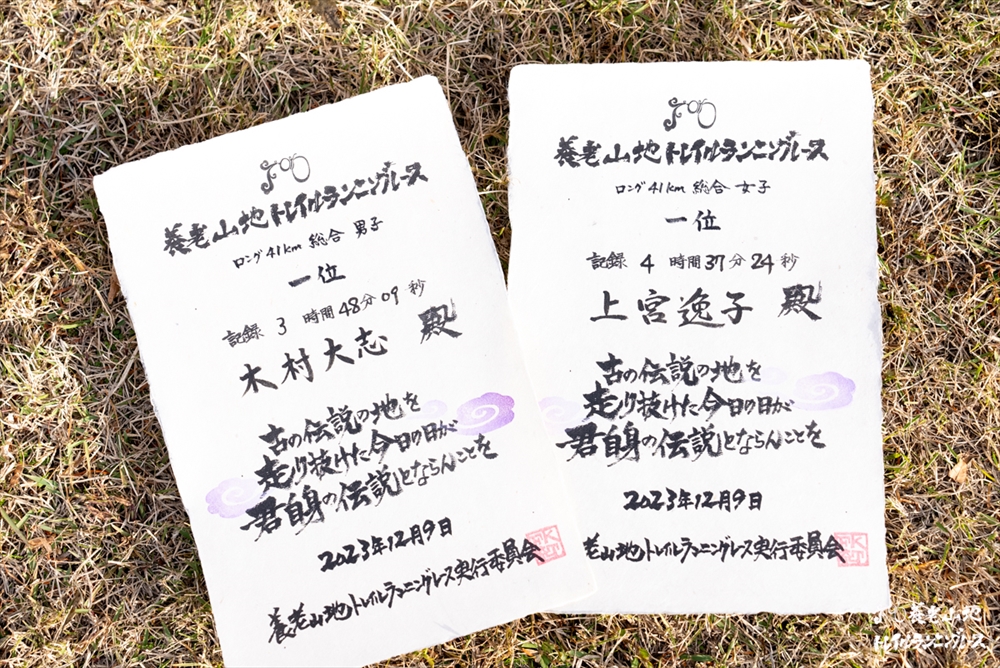 養老山地トレイルランニングレース
ロング41km 総合 男子
一位
記録 3 時間48分09秒
木村大志 殿
古の伝説の地を
走り抜けた今日の日が
君自身の伝説とならんことを
2023年12月9日
養老山地トレイルランニングレース実行委員会
養老山地トレイルランニングレース
ロング41km 総合 女子
一位
記録 4 時間37分24秒
上宮逸子 殿
古の伝説の地を
走り抜けた今日の日が
君自身の伝説とならんことを
2023年12月9日
老山地トレイルランニングレース実行委員会
養老山地
トレイルランニングレース